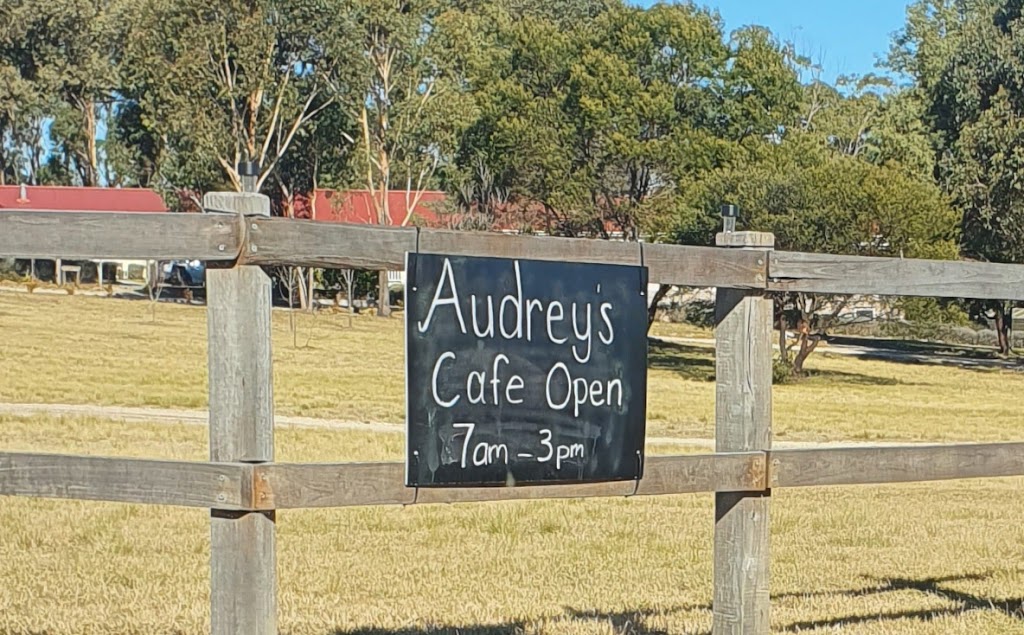 Audrey's
Cafe Open
7am - 3pm